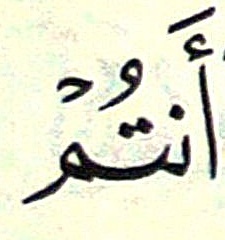 أَنتُمْ